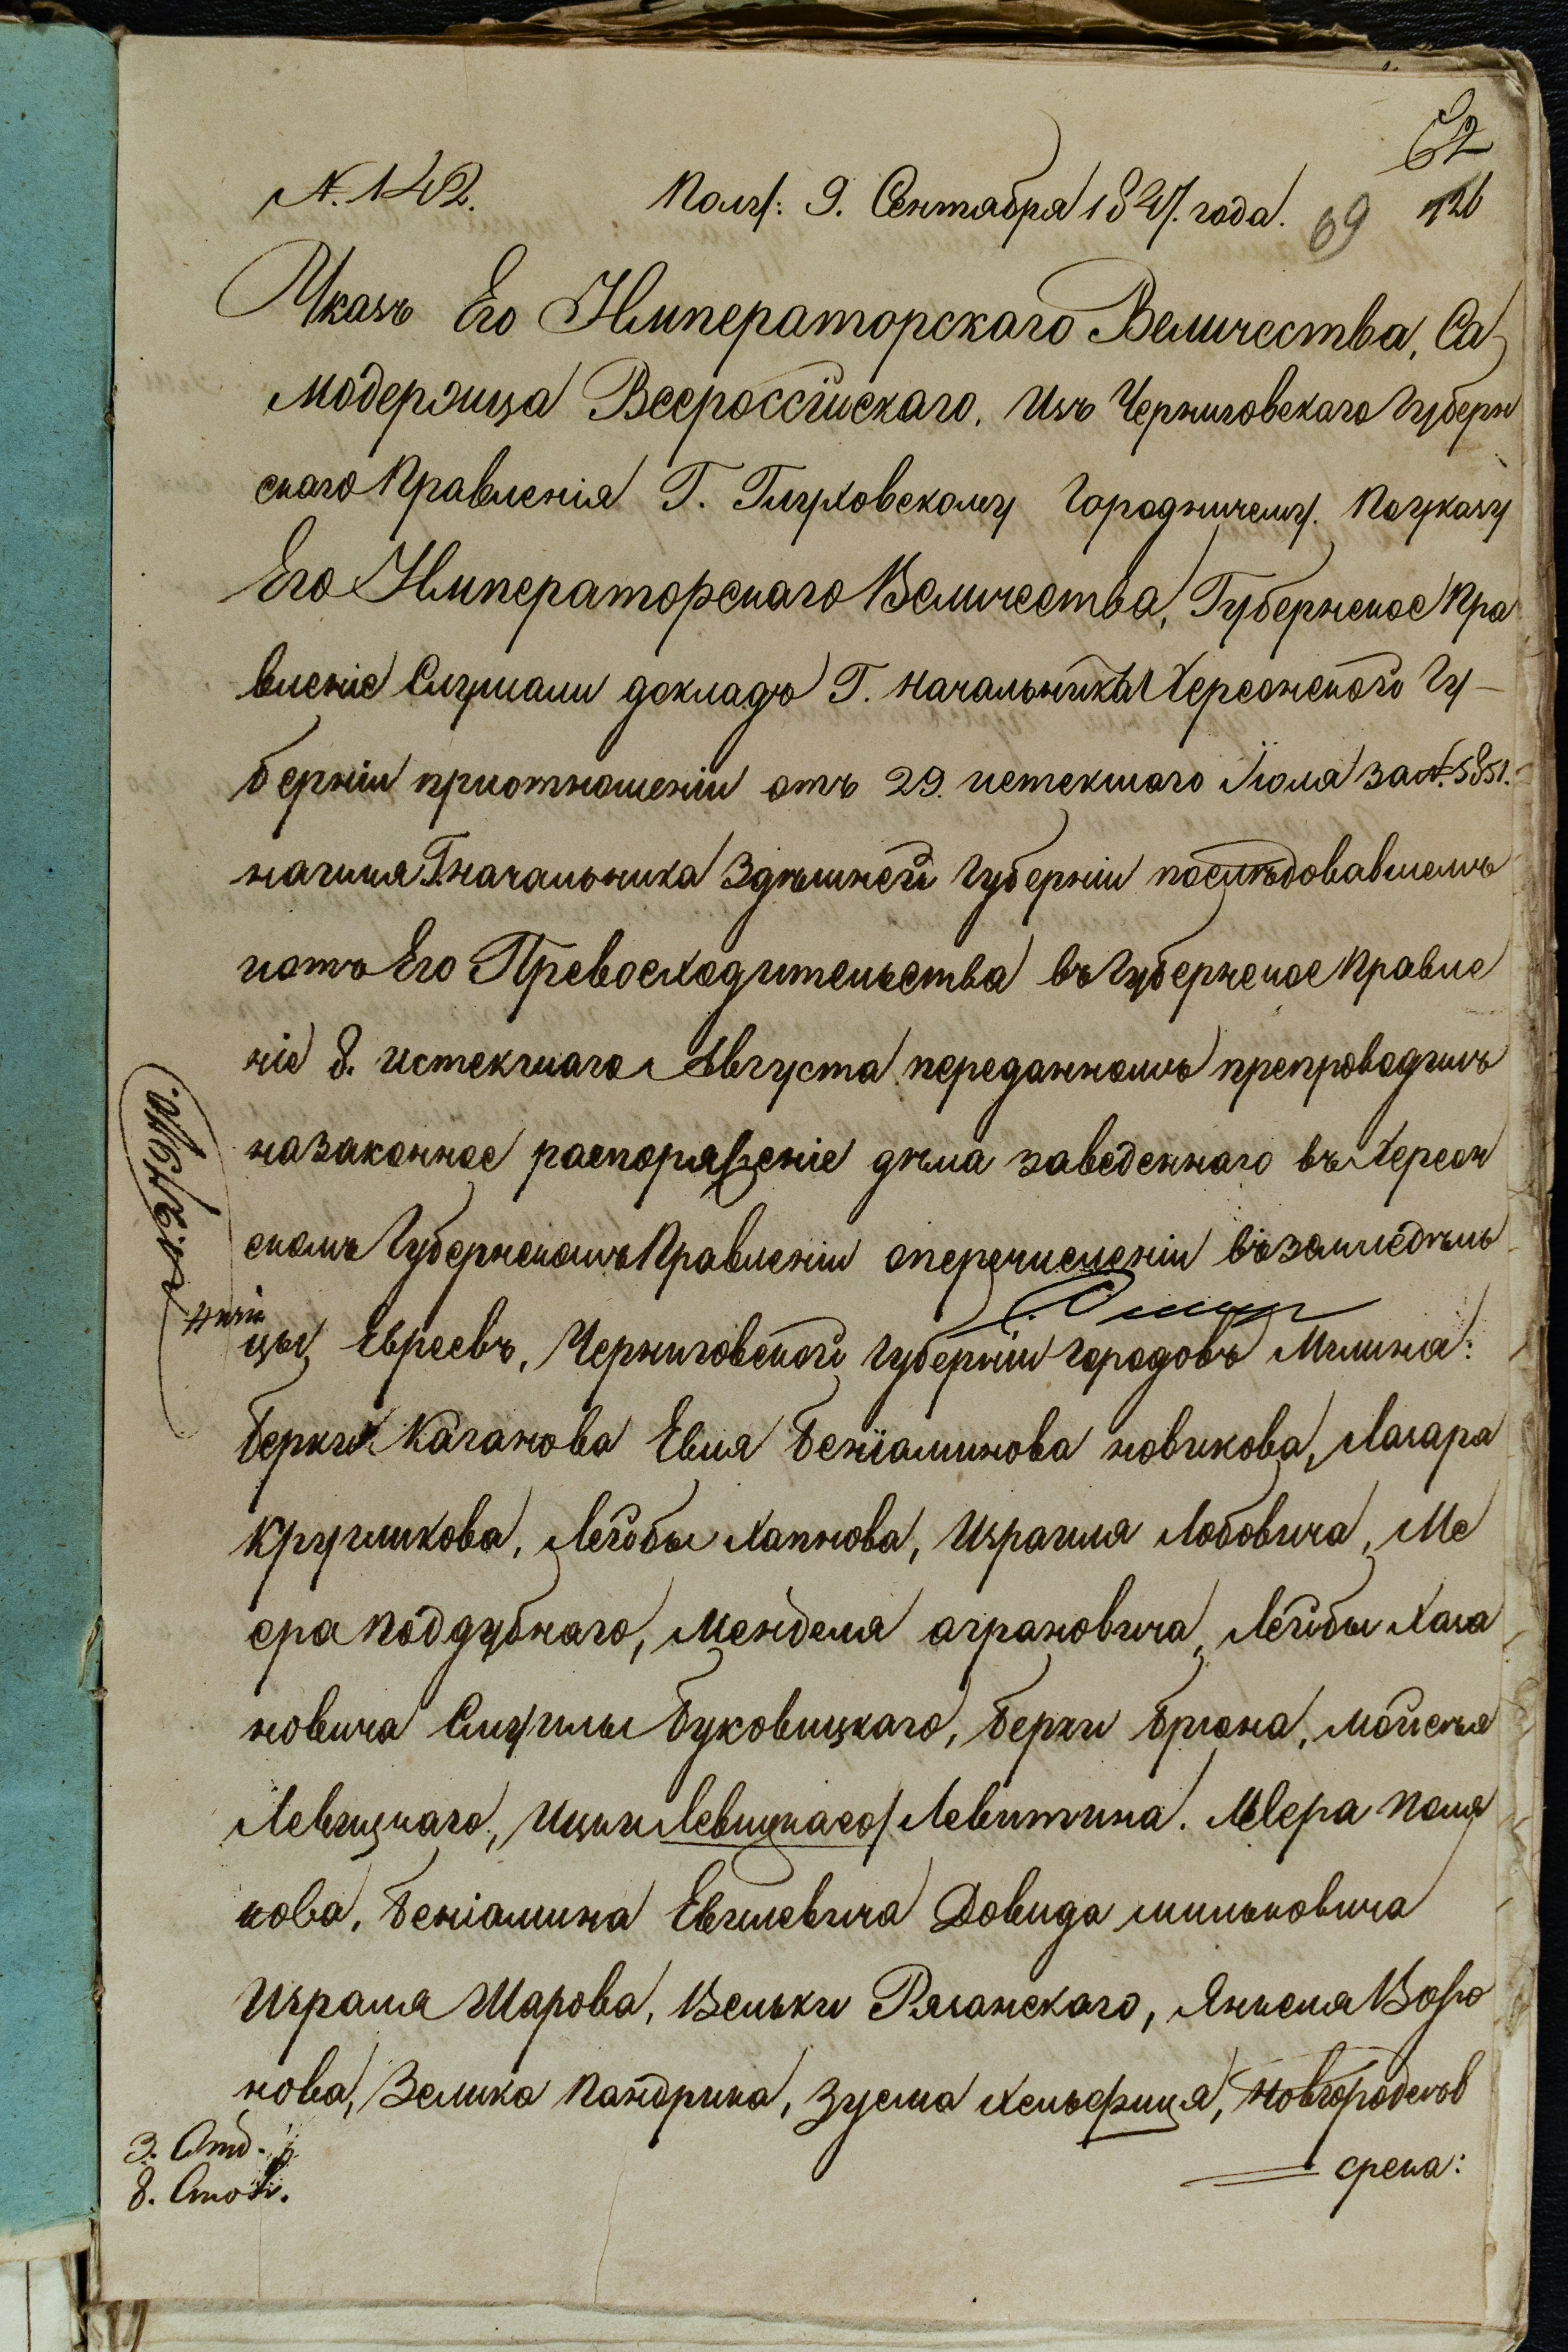 62
N. 142. Полу: 9. Сентября 1847. года. 69 126
Указъ Его Императорскаго Величества, Са
модержца Всероссійскаго, изъ Черниговскаго Губерн
скаго Правленія Г. Глуховскому Городничему. По указу
Его Императорскаго Величества, Губернское Пра
вленіе Слушали докладъ Г. Начальника Херсонской Гу–
берніи при отношеніи отъ 29. истекшаго Іюля за N. 5851.
на имя Г. Начальника Здѣшней Губерніи послѣдовавшемъ
и отъ Его Превосходительства въ Губернское Правле
ніе 8. истекшаго Августа переданномъ препроводилъ
на законное распоряженіе дѣла заведеннаго въ Херсон
скомъ Губернскомъ Правленіи о перечисленіи въ земледѣль
цы Евреевъ, Черниговской Губерніи городовъ Мглина:
Берки Каганова Евля Беніаминова Новикова, Лазара
Кругликова, Лейбы Хапнова, Израиля Лобовича, Ме
ера Поддубнаго, Менделя Аграновича, Лейбы Хаза
новича Смуилы Буковицкаго, Берки Брона, Мойсея
Левицкаго, Ицки Левицкаго/ Левитина. Меера Поля
кова, Беніамина Евилевича Довида Мильковича
Израля Шарова, Вельки Рязанскаго, Янкеля Воро
нова, Зелика Пандрика, Зуся Хельфица, Новгородсѣв
срека:
3. Отд.
8. Стол.